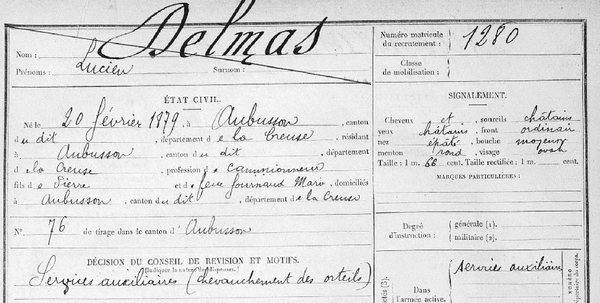 Nom : Delmas
Prénoms : Lucien Surnom :
Numéro matricule du recrutement : 1280
Classe de mobilisation :
ÉTAT CIVIL.
Né le 20 février 1879, à Aubusson, canton
du dit, département de la Creuse, résidant
à Aubusson, canton du dit, département
de la Creuse, profession de camionneur
fils de Pierre et de feue Journaud Marie, domiciliés
à Aubusson, canton du dit, département de la Creuse
N° 76 de tirage dans le canton d'Aubusson
SIGNALEMENT.
Cheveux et sourcils châtains
yeux châtains, front ordinair
nez épaté, bouche moyenne
menton rond, visage ovale
Taille : 1 m. 66 cent. Taille rectifiée : 1 m. cent.
MARQUES PARTICULIÈRES :
Degré d'instruction : générale (1).
militaire (2).
DÉCISION DU CONSEIL DE REVISION ET MOTIFS.
Services auxiliaires (chevauchement des orteils)
Dans l'armée active.
services auxiliair